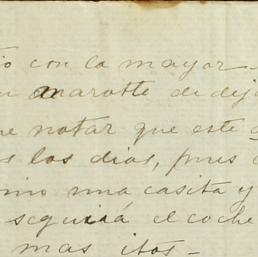 con la mayor
marotte de dej
notar que este
los dias, pues
una casita y
seguirá el coche
mas itos-